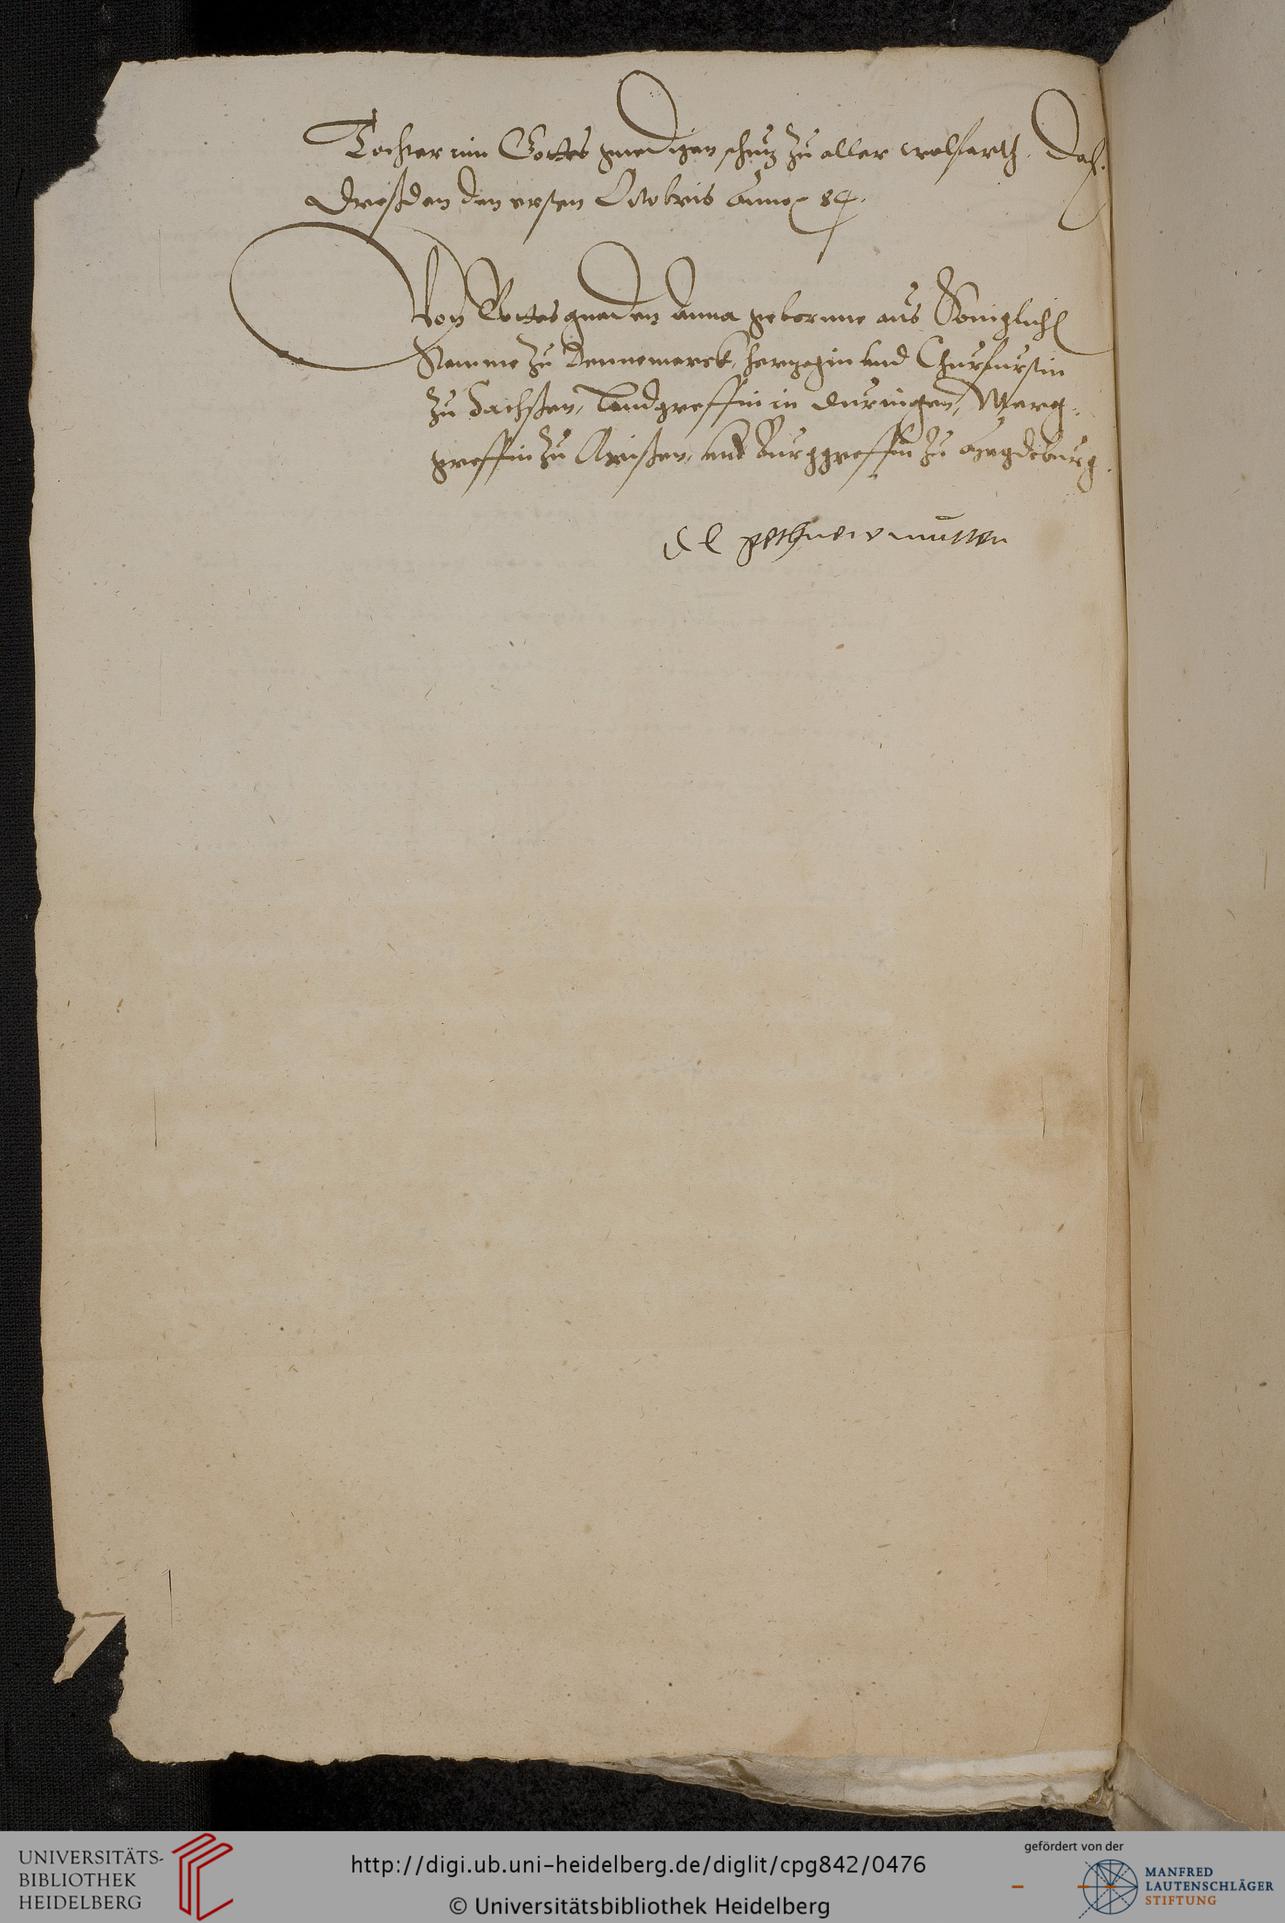 Tochter inn Gottes gnedigen schutz zu aller wolfarth. Dat.
Dreßden den ersten Octobris Anno 84.
Von Gottes gnaden Anna gebornne aus Königlichē
Stamme zu Dennemarck, hertzogin und Churfurstin
zu Sachßen, Landgreffin in Duringen, Marg-
greffin zu Meißen, und Burggreffin zu Magdeburg.
E L gethrew mutter
UNIVERSITÄTS-
BIBLIOTHEK
HEIDELBERG
http://digi.ub.uni-heidelberg.de/diglit/cpg842/0476
© Universitätsbibliothek Heidelberg
gefördert von der
MANFRED
LAUTENSCHLÄGER
STIFTUNG